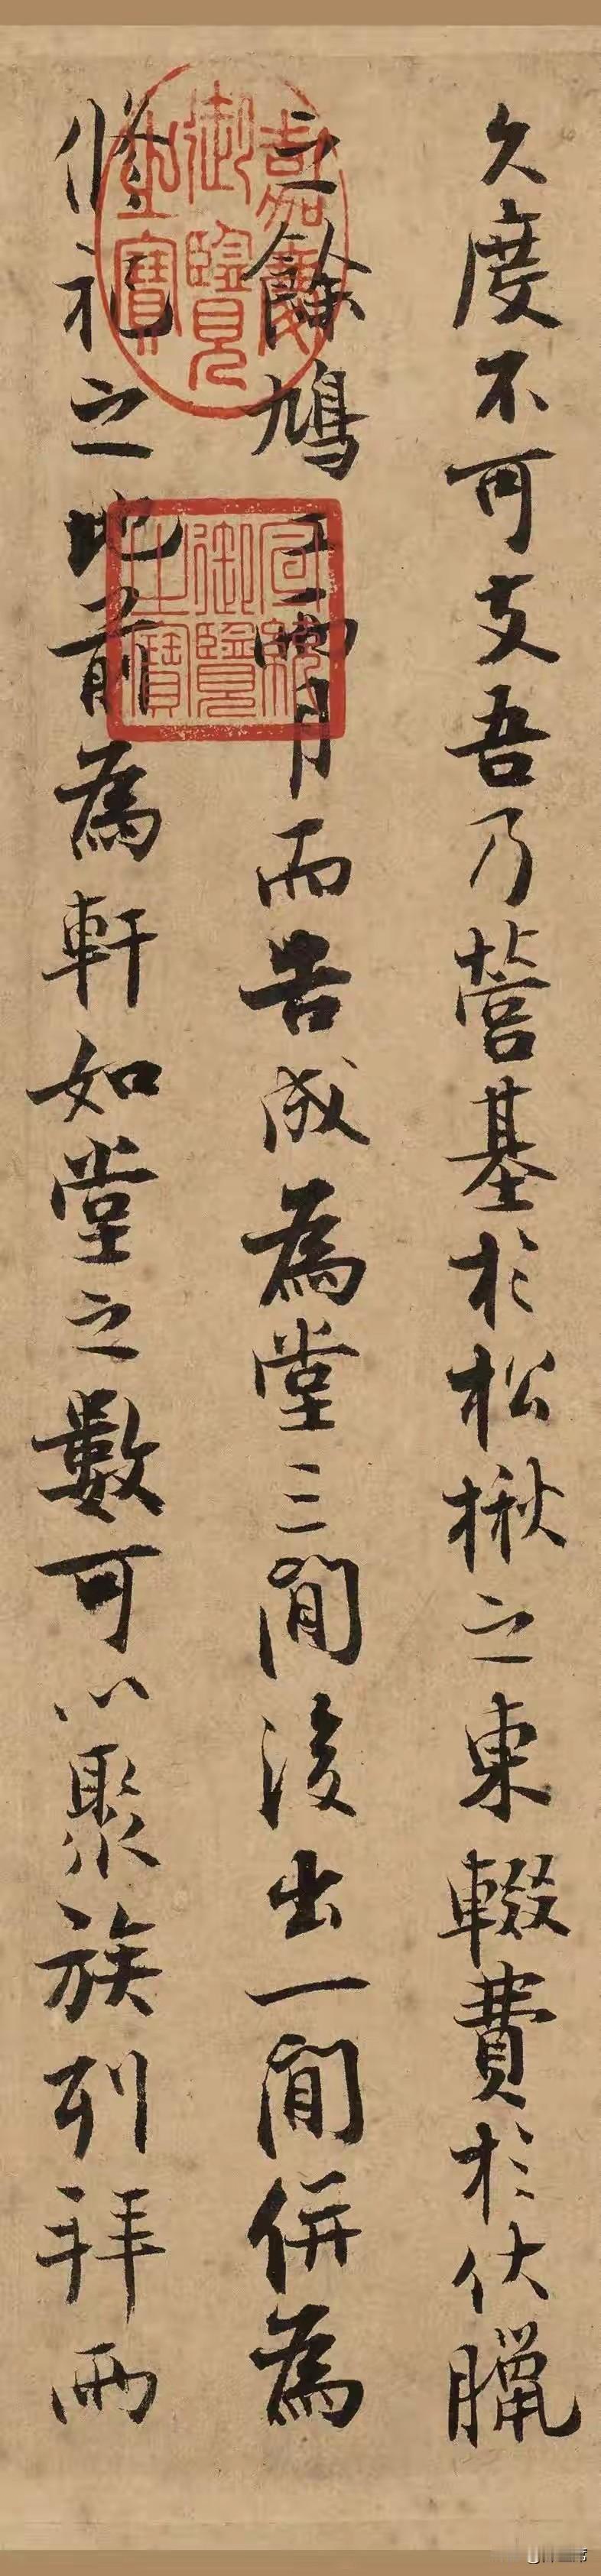 久度不可支吾乃營基於松楸之東輟費於伏臘
之餘鳩工一月而告成為堂三間後出一間併為
修祀之地前為軒如堂之數可以聚族列拜兩
嘉慶御覽之寶
宣統御覽之寶